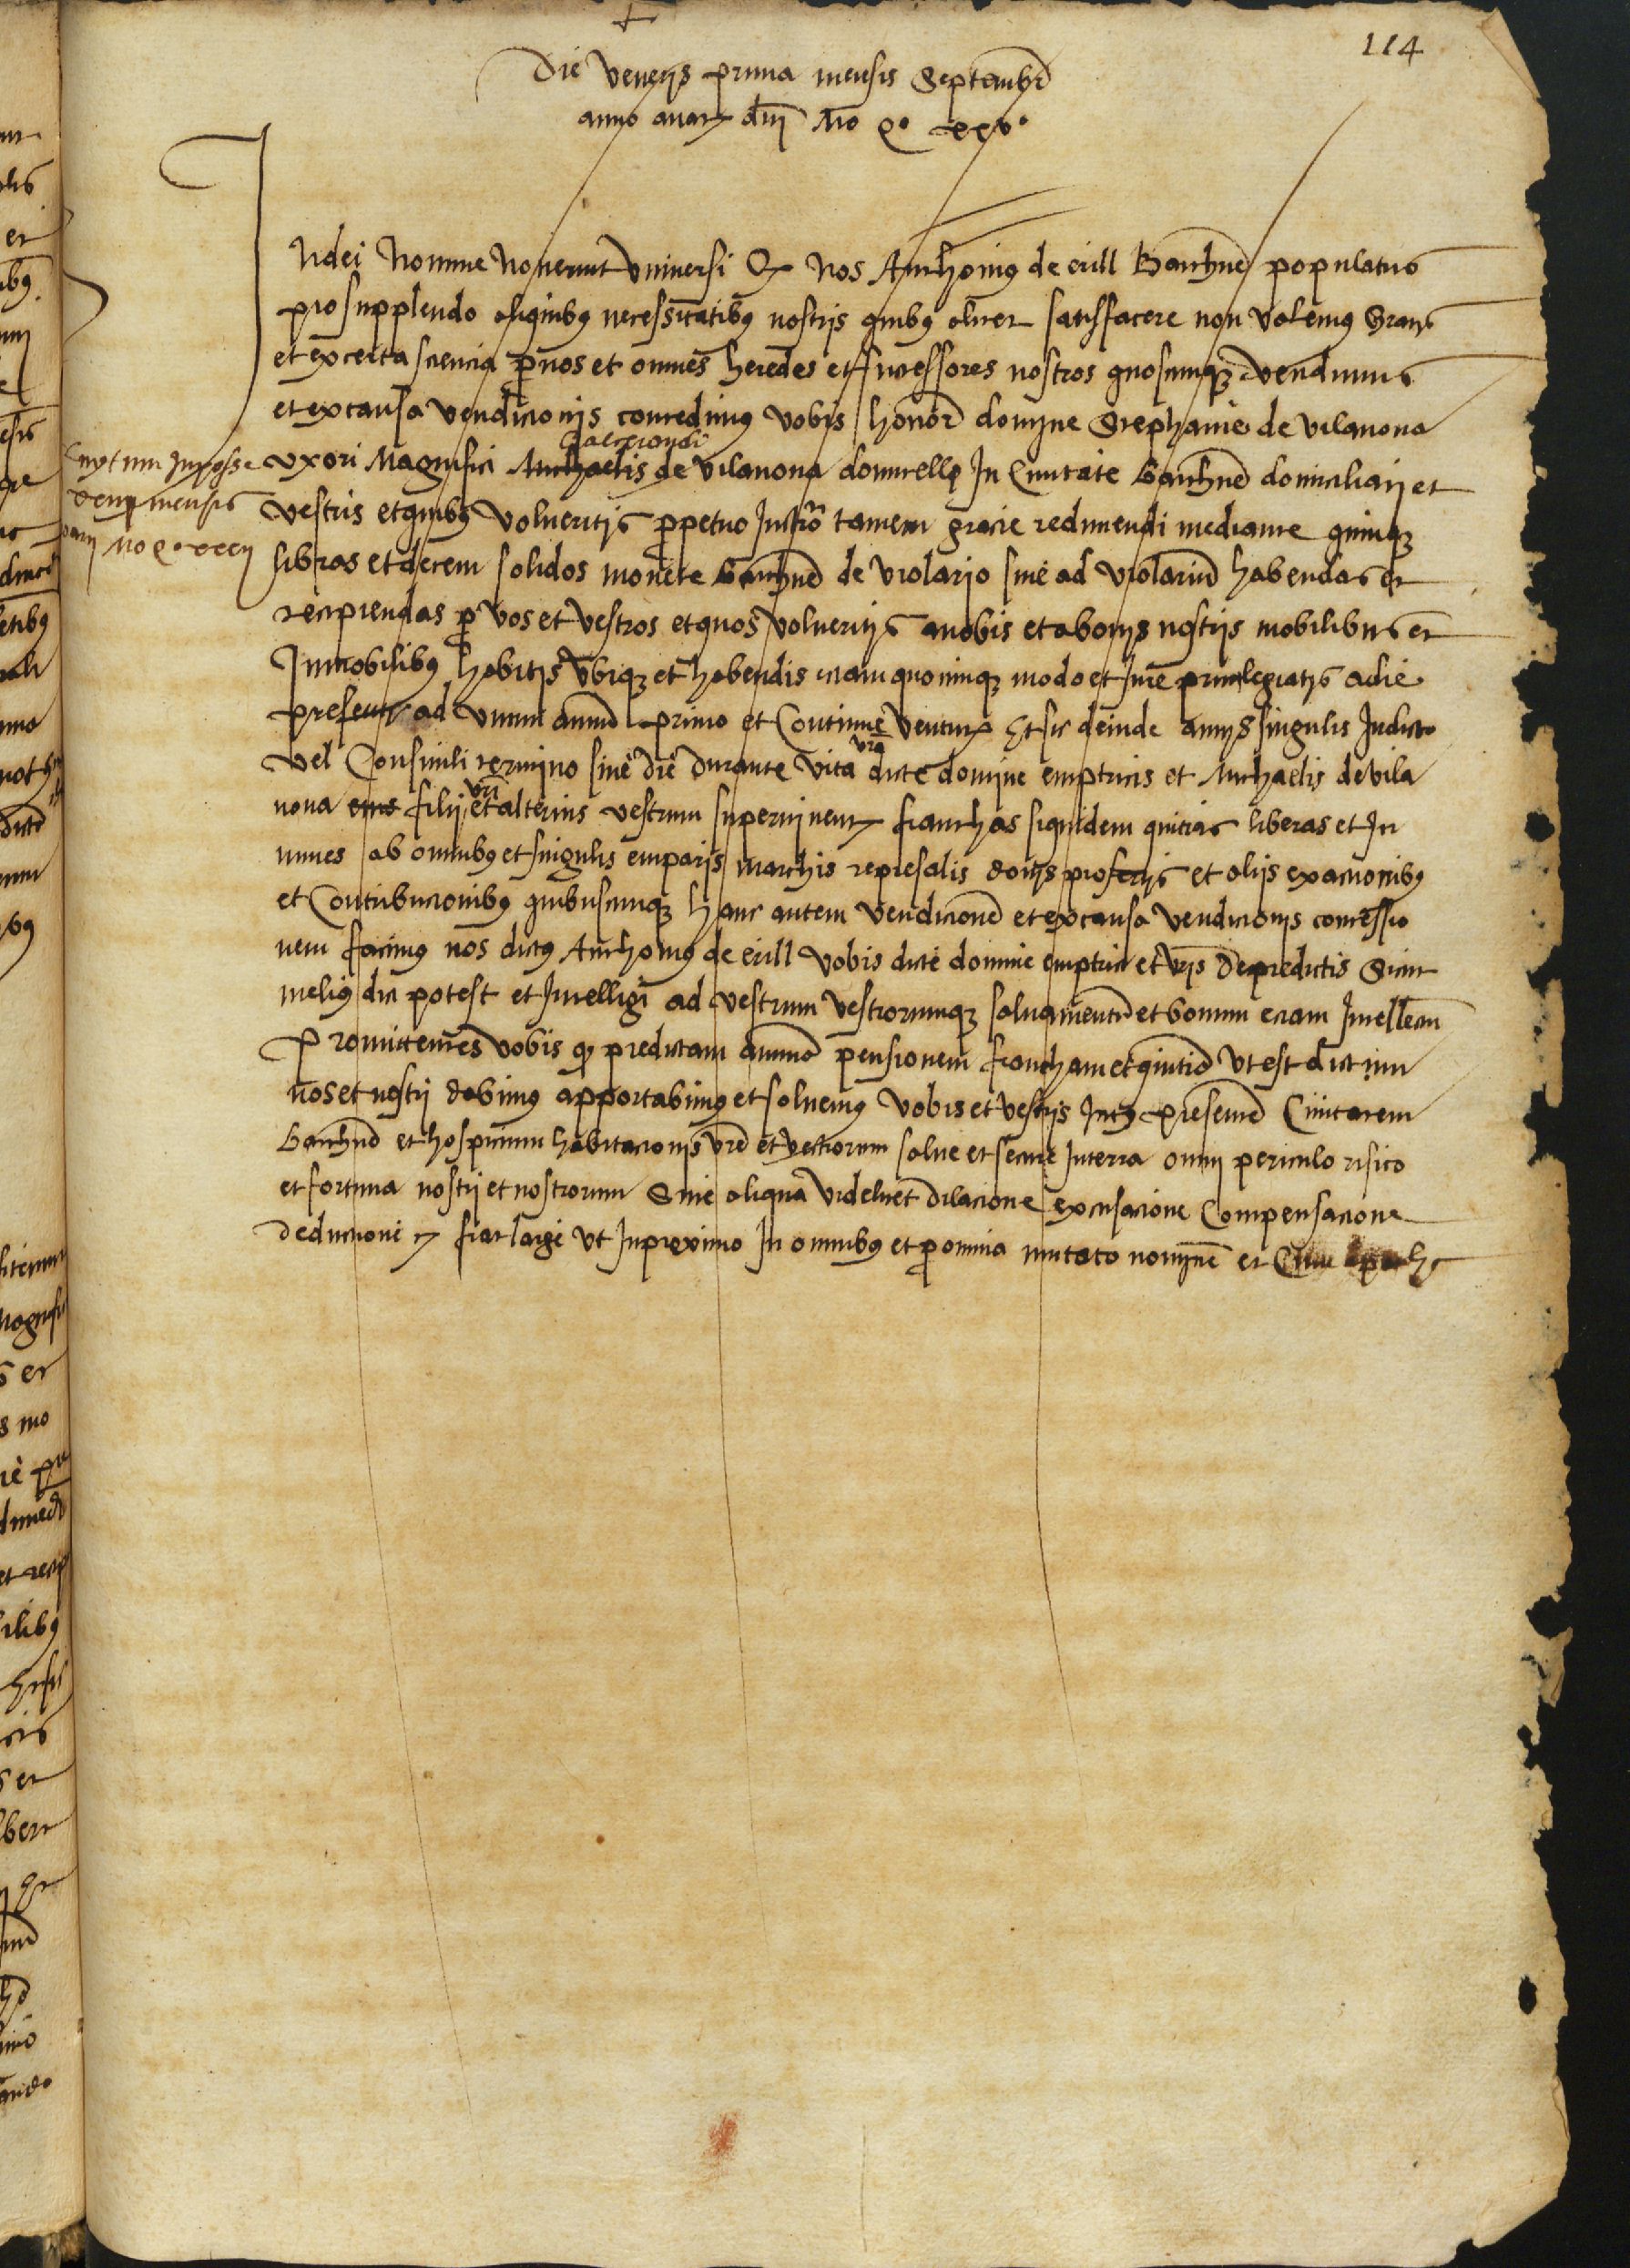 114
Die veneris prima mensis Septembr
anno a nat dni Mo Qo xxvo
In dei nomine Noverint universi Q nos Anthonius de erill Barchne populatus
pro supplendo aliquibus necessitatibus nostris quibus aliter satisfacere non valemus Gratis
et ex certa sciencia per nos et omnes heredes et successores nostros quoscumque vendimus
et ex causa vendicionis concedimus vobis honor domine Stephanie de vilanova
uxori Magnifici Michaelis de vilanova domicelli In Civitate Barchne domiciliati et
vestris et quibus volueritis perpetuo Instro tamen gracie redimendi mediante quinque
libras et decem solidos monete Barchne de violario sive ad violarium habendas et
recipiendas per vos et vestros et quos volueritis a nobis et a bonis nostris mobilibus et
Inmobilibus habitis ubique et habendis etiam quocumque modo et Iure privilegiatis a die
presenti ad unum annum primo et Continue ventur Et sic deinde annis singulis In dicto
vel Consimili termino sive die Durante vita vra dicte domine emptricis et Michaelis de vila
nova eius filii vri et alterius vestrum superviventis franchas siquidem quitias liberas et In
munes ab omnibus et singulis emparis marchis represaliis donis proferiis et aliis exaccionibus
et Contribucionibus quibuscumque hanc autem vendicione et ex causa vendicionis concessio
nem facimus nos dictus Anthonius de erill vobis dicte domine emptrici et vris De predictis Sicut
melius dici potest et Intelligi ad vestrum vestrorumque salvamentum et bonum etiam Intellectum
Promittentes vobis q predictam annuam pensionem francham et quitiam ut est dictum
nos et nostri dabimus apportabimus et solvemus vobis et vestris Intus presentem Civitatem
Barchne et hospicium habitacionis vre et vestrorum salve et secure In terra omni periculo risico
et fortuna nostri et nostrorum Sine aliqua videlicet dilacione excusacione Compensacione
deduccione et fiat large ut In proximo In omnibus et per omnia mutato nomine et